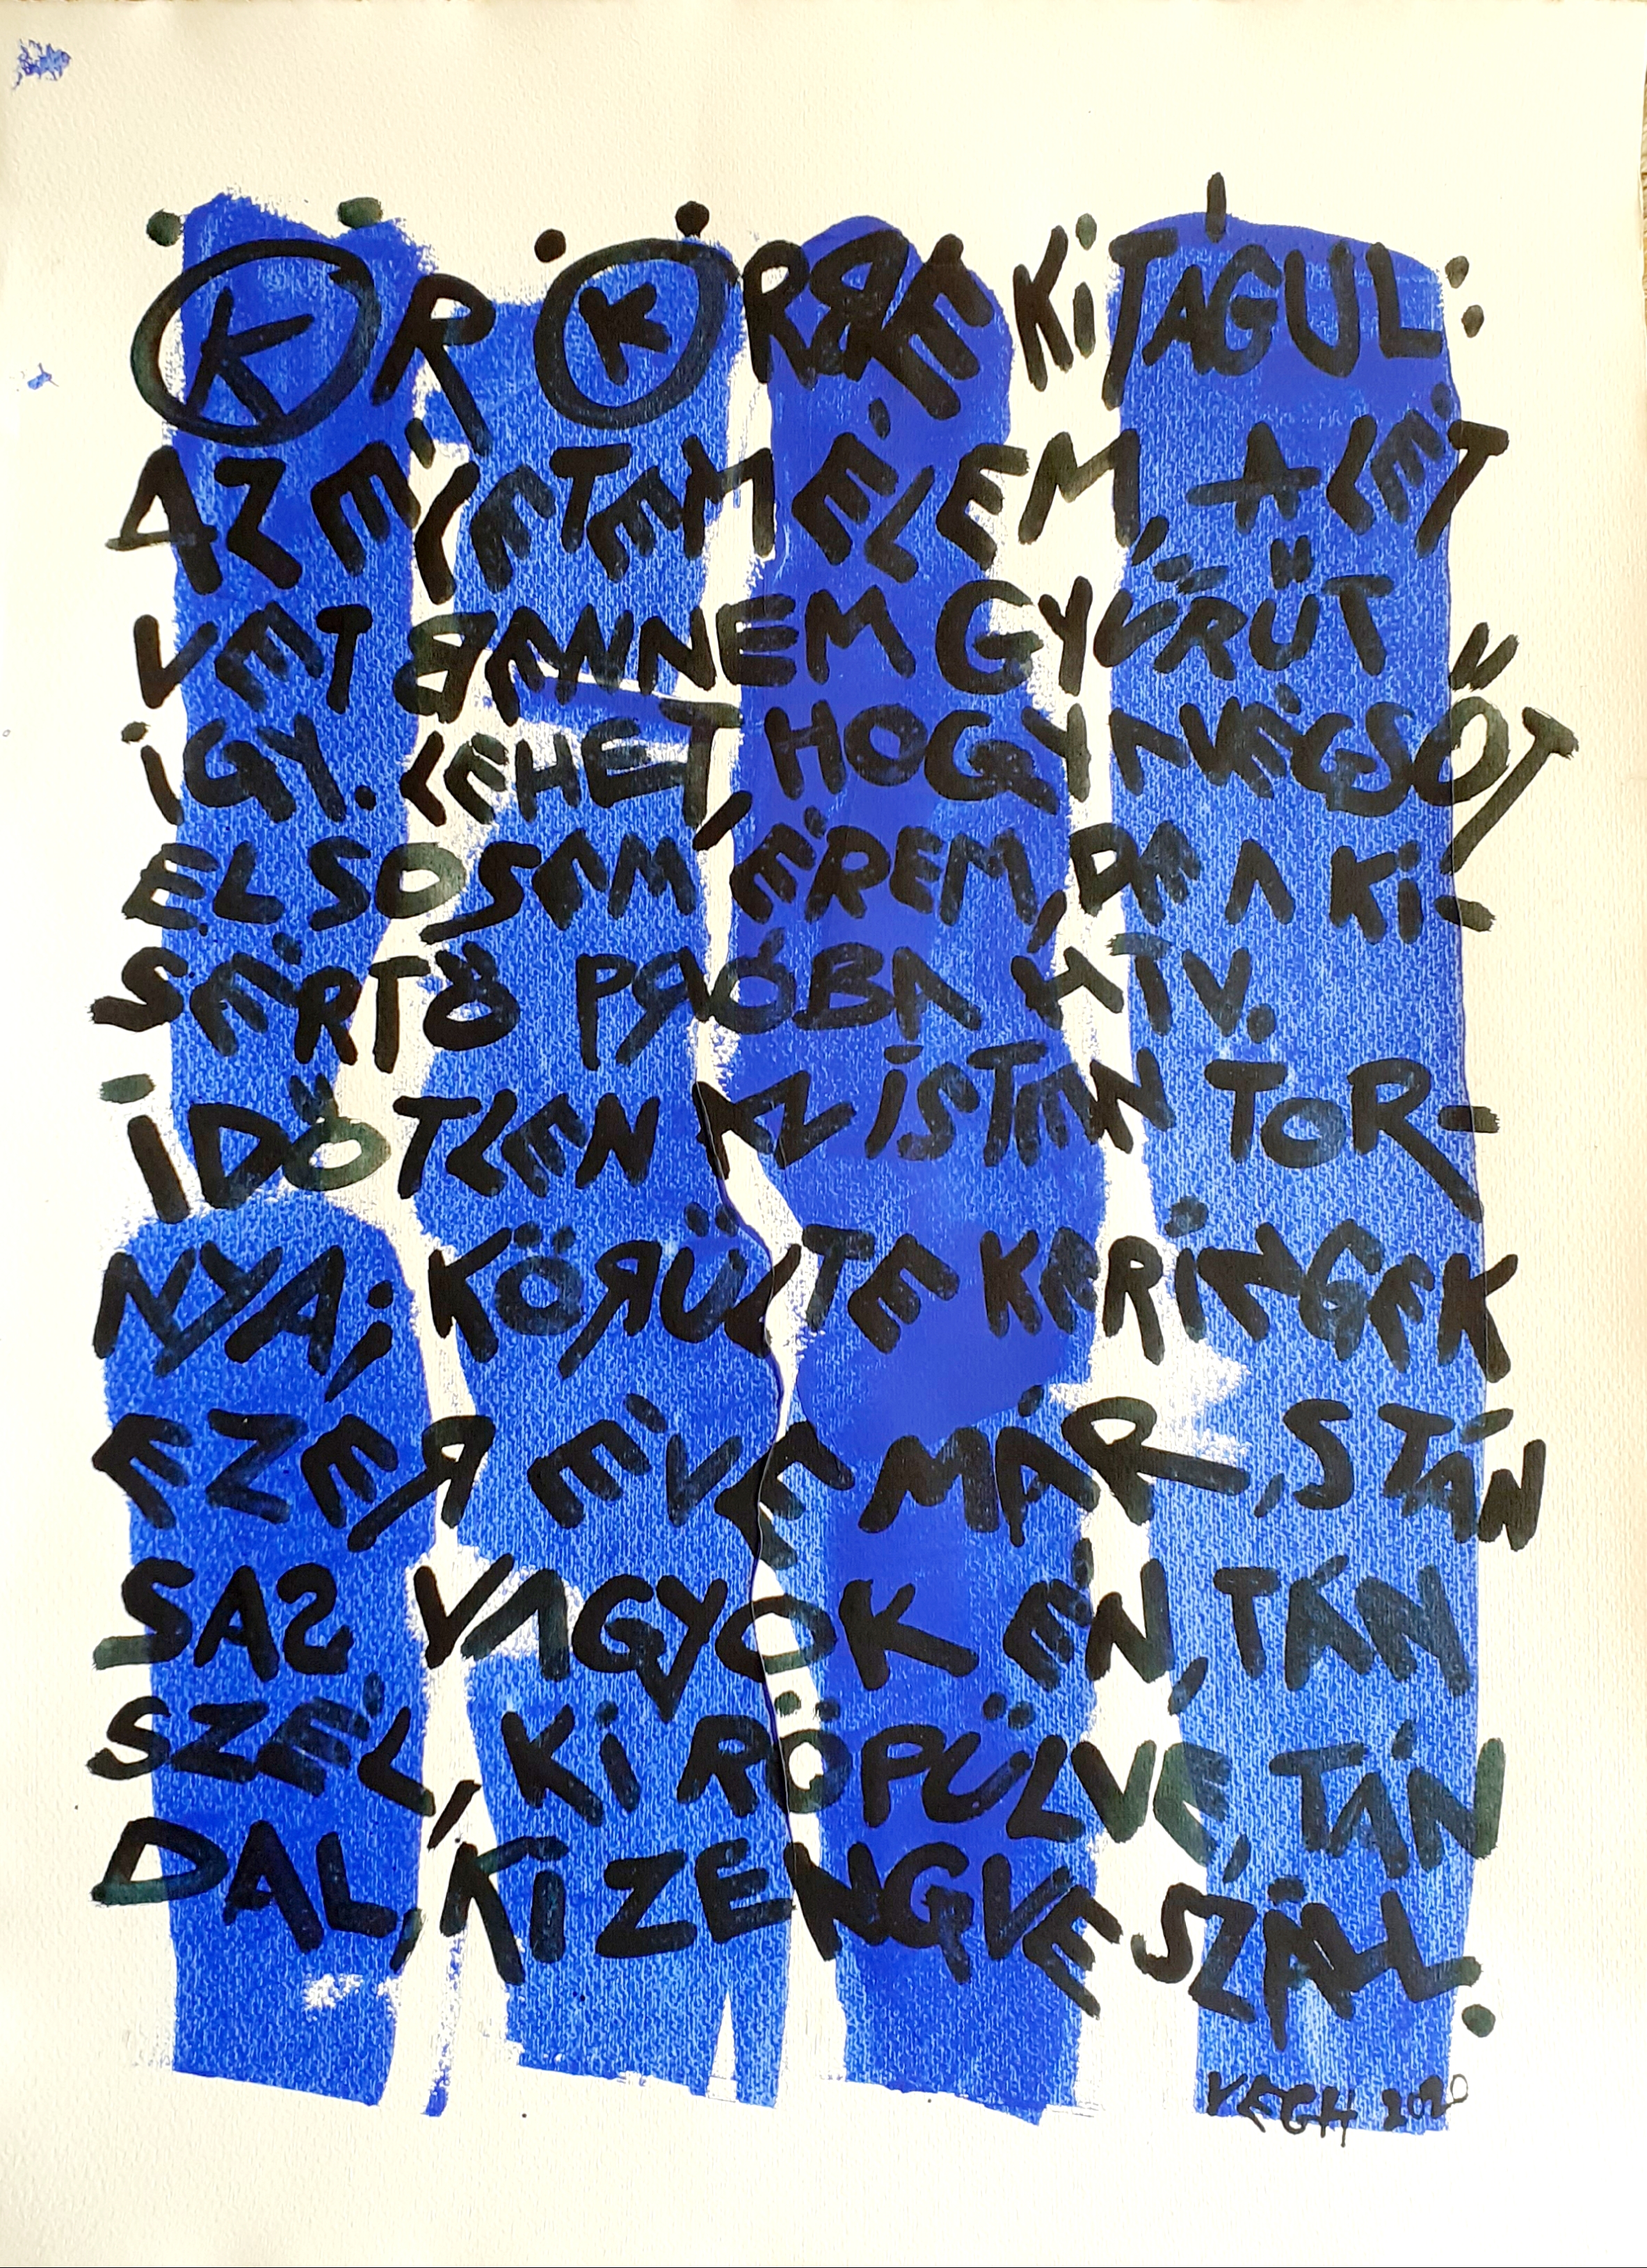 KÖR KÖRRE KITÁGUL:
AZ ÉLETEM ÉLEM, A LÉT
VET BENNEM GYŰRŰT
ÍGY. LEHET, HOGY A VÉGSŐT
EL SOSEM ÉREM, DE A KI-
SÉRTŐ PRÓBA HÍV.
IDŐTLEN AZ ISTEN TOR-
NYA; KÖRÜLTE KERINGEK
EZER ÉVE MÁR, S TÁN
SAS VAGYOK ÉN, TÁN
SZÉL, KI RÖPÜLVE, TÁN
DAL, KI ZENGVE SZÁLL.
VEGH 2020